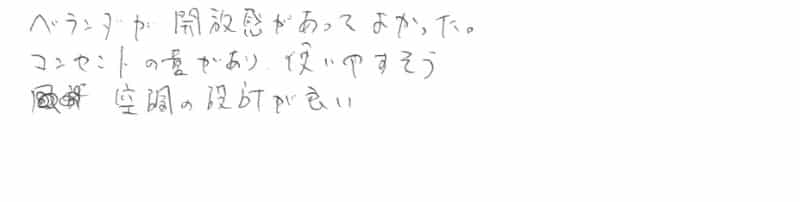 ベランダが開放感があってよかった。
コンセントの量があり使いやすそう
空調の設計が良い